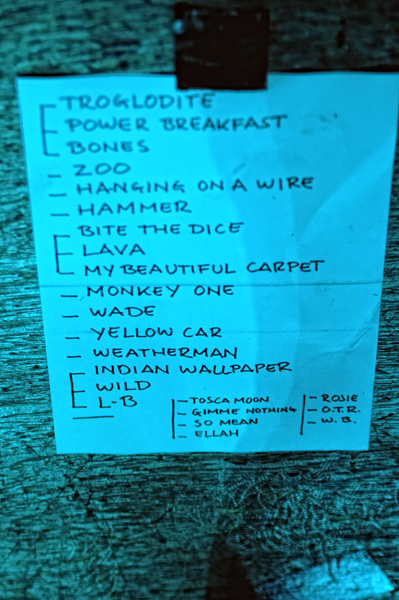 TROGLODITE
POWER BREAKFAST
BONES
- ZOO
- HANGING ON A WIRE
- HAMMER
BITE THE DICE
LAVA
MY BEAUTIFUL CARPET
- MONKEY ONE
- WADE
- YELLOW CAR
- WEATHERMAN
INDIAN WALLPAPER
WILD
L-B
- TOSCA MOON
- GIMME NOTHING
- SO MEAN
- ELLAH
- ROSIE
- O.T.R.
- W.B.